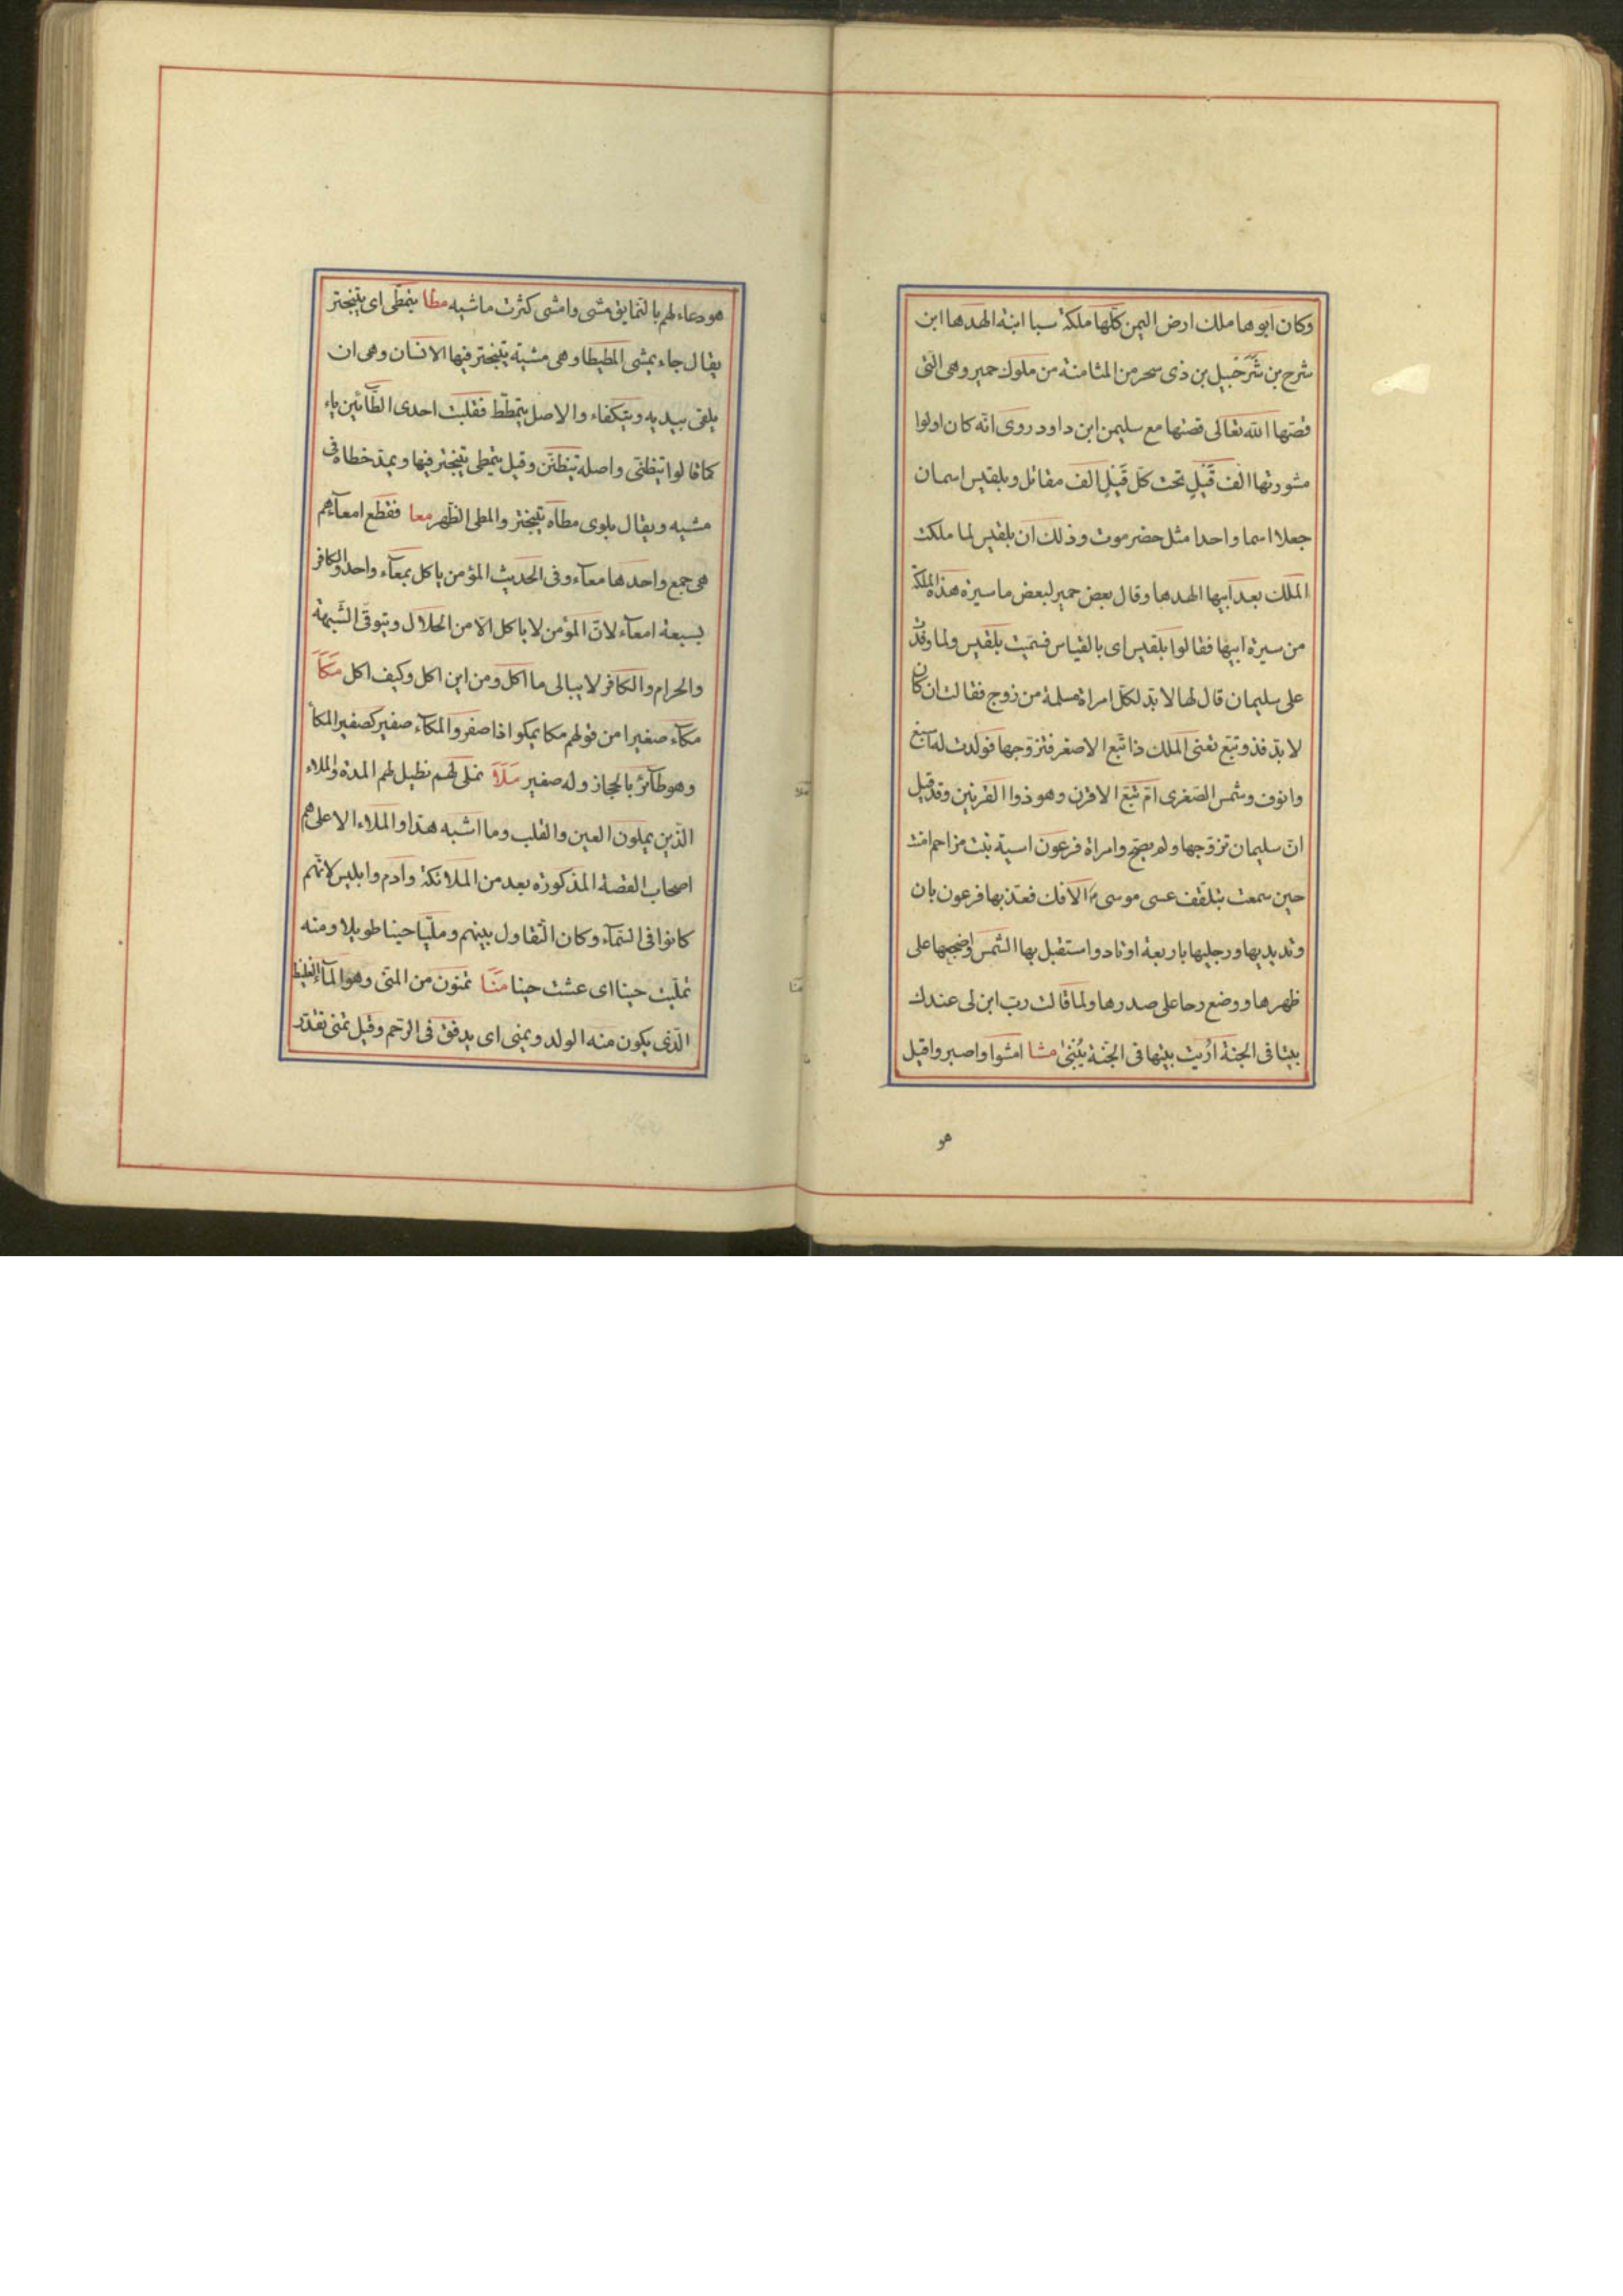 وكان ابوها ملك ارض اليمن كلّها ملكة سبا ابنة الهدها ابن
شرح بن شَرَحْبيل بن ذى سحر من المثامنة من ملوك حمير وهى الّتى
قصّها الله تعالى قصتها مع سليمن ابن داود روى انّه كان اولوا
مشورتها الف قَيْلٍ تحت كلّ قَيْلٍ الف مقاتل وبلقيس اسمان
جعلا اسما واحدا مثل حضرموت وذلك ان بلقيس لما ملكت
الملك بعد ابيها الهدها وقال بعض حمير لبعض ما سيرة هذه الملكة
من سيرة ابيها فقالوا بلقيس اى بالقياس فسمّيت بلقيس ولما وفدت
على سليمان قال لها لا بدّ لكلّ امراة مسلمة من زوج فقالت ان كان
لا بدّ فذو تبّع تعنى الملك ذا تبّع الاصغر فتزوّجها فولدت له
وانوف وشمس الصّغرى امّ تبّع الاقرن وهو ذوا القرنين وقد قيل
انّ سليمان تزوّجها ولم يصحّ وامراة فرعون اسية بنت مزاحم امنت
حين سمعت بتلقّف عسى موسى الافك فعذّبها فرعون بان
وتد يديها ورجليها باربعة اوتاد واستقبل بها الشّمس واضجعها على
ظهرها ووضع رحا على صدرها ولما قالت ربّ ابن لى عندك
بيتا فى الجنة اُرْيت بيتها فى الجنّة يُبْنى مشا امشوا واصبروا قيل
هو
هو دعاء لهم بالنّما يق مشى وامشى كثرت ماشيه مطا يتمطّى اى يتبختر
يقال جاء يمشى المطيطا وهى مشية يتبختر فيها الانسان وهى ان
يلقى بيديه ويتكفاء والاصل يتمطّط فقلبت احدى الطّائين ياء
كما قالوا يتظنّى واصله يتظنّن وقيل يتمطى يتبختر فيها ويمدّ خطاه فى
مشيه ويقال يلوى مطاه يتبختر والمطى الظّهر معا فقطع امعآءهم
هى جمع واحدها معآء وفى الحديث المؤمن ياكل بمعآء واحد والكافر
بسبعة امعآء لانّ المؤمن لا ياكل الّا من الحلال ويتوقّى الشّبهة
والحرام والكافر لا يبالى ما اكل ومن اين اكل وكيف اكل مَكَاَ
مكآء صغيرا من قولهم مكا يمكوا اذا صفر والمكآء صفير كصفير المكأ
وهو طآئر بالحجاز وله صفير مَلَأَ نملى لهم نطيل لهم المدة والملاء
الّذين يملون العين والقلب وما اشبه هذا والملاء الاعلى هم
اصحاب القصة المذكورة بعد من الملائكة وادم وابليس لانّهم
كانوا فى السّمآء وكان التّقاول بينهم ومليّا حينا طويلا ومنه
تملّيت حينا اى عشت حينا مَنَا تمنون من المنّى وهو المآء الغليظ
الّذى يكون منه الولد ويمنى اى يدفق فى الرّحم وقيل تمنى تقدّر